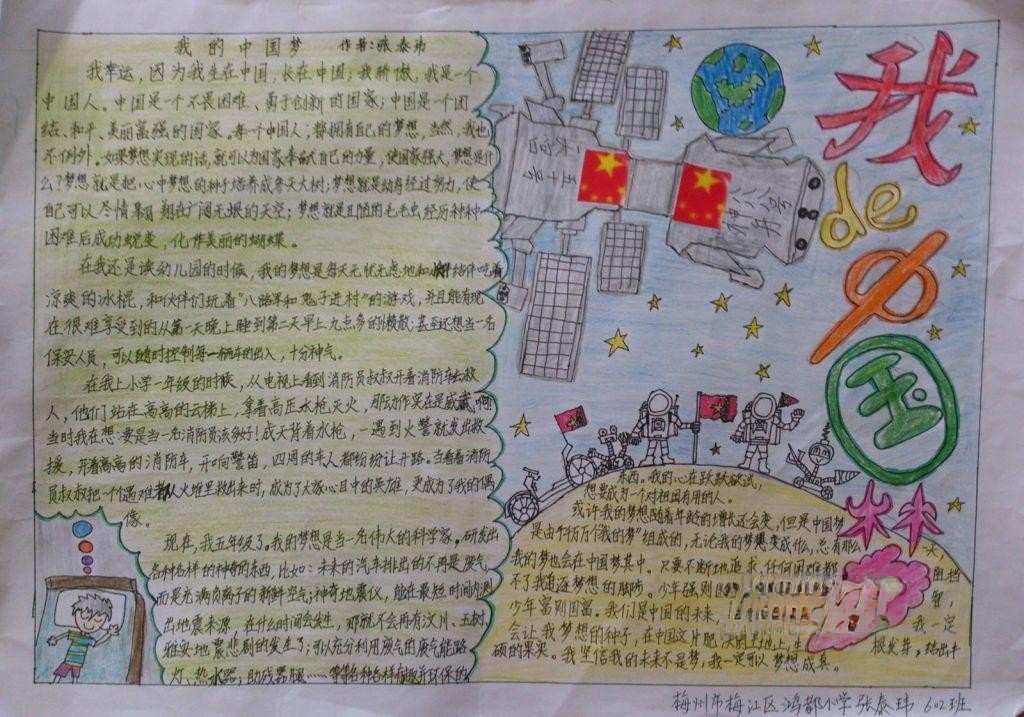 我的中国梦 作者:张泰玮
我幸运，因为我生在中国，长在中国；我骄傲，我是一个
中国人。中国是一个不畏困难、勇于创新的国家；中国是一个团
结、和平、美丽富强的国家。每一个中国人，都拥有自己的梦想，当然，我也
不例外。如果梦想实现的话，就可以为国家奉献自己的力量，使国家强大。梦想是什
么？梦想就是把心中梦想的种子培养成参天大树；梦想就是经过努力，使
自己可以尽情翱翔在广阔无垠的天空；梦想就是丑陋的毛毛虫经历种种
困难后成功蜕变，化作美丽的蝴蝶。
在我还是读幼儿园的时候，我的梦想是每天无忧无虑地和结伴吃着
凉爽的冰棍，和伙伴们玩着“八路军和鬼子进村”的游戏，并且能有现
在很难享受到的从第一天晚上睡到第二天早上九点多的懒散；甚至还想当一名
保安人员，可以随时控制每一辆车的出入，十分神气。
在我上小学一年级的时候，从电视上看到消防员叔叔开着消防车去救
人，他们站在高高的云梯上，拿着高压水枪灭火，那动作实在是威武啊
当时我在想：要是当一名消防员该多好！成天背着水枪，一遇到火警就发出救
援，开着高高的消防车，开响警笛，四周的车人都纷纷让开路。当看着消防
员叔叔把一个个遇难者从火堆里救出来时，成为了大家心目中的英雄，更成为了我的偶
像。
现在，我五年级了，我的梦想是当一名伟大的科学家。研发出
各种各样的神奇的东西，比如：未来的汽车排出的不再是废气，
而是充满负离子的新鲜空气；神奇地震仪，能在最短时间内测
出地震来源，在什么时间会发生，那就不会再有汶川、玉树、
雅安地震悲剧的发生了；可以充分利用废气的废气能路
灯、热水器；助残器腿……等等各种各样有趣并环保的
东西。我的心在跃跃欲试，
想要成为一个对祖国有用的人。
或许我的梦想随着年龄的增长还会变，但是中国梦
是由千千万万个“我的梦”组成的，无论我的梦想变成什么，总有那么一天，
我的梦也会在中国梦其中。只要不断地追求，任何困难都阻挡
不了我追逐梦想的脚步。少年强则国
少年富则国富。我们是中国的未来，我一定
会让我梦想的种子，在中国这片肥沃的土地上，根发芽，结出丰
硕的果实。我坚信我的未来不是梦，我一定可以梦想成真。
天宫
五十号
神州
号
我
de
中
国
梦
梅州市梅江区鸿都小学 张泰玮 602班